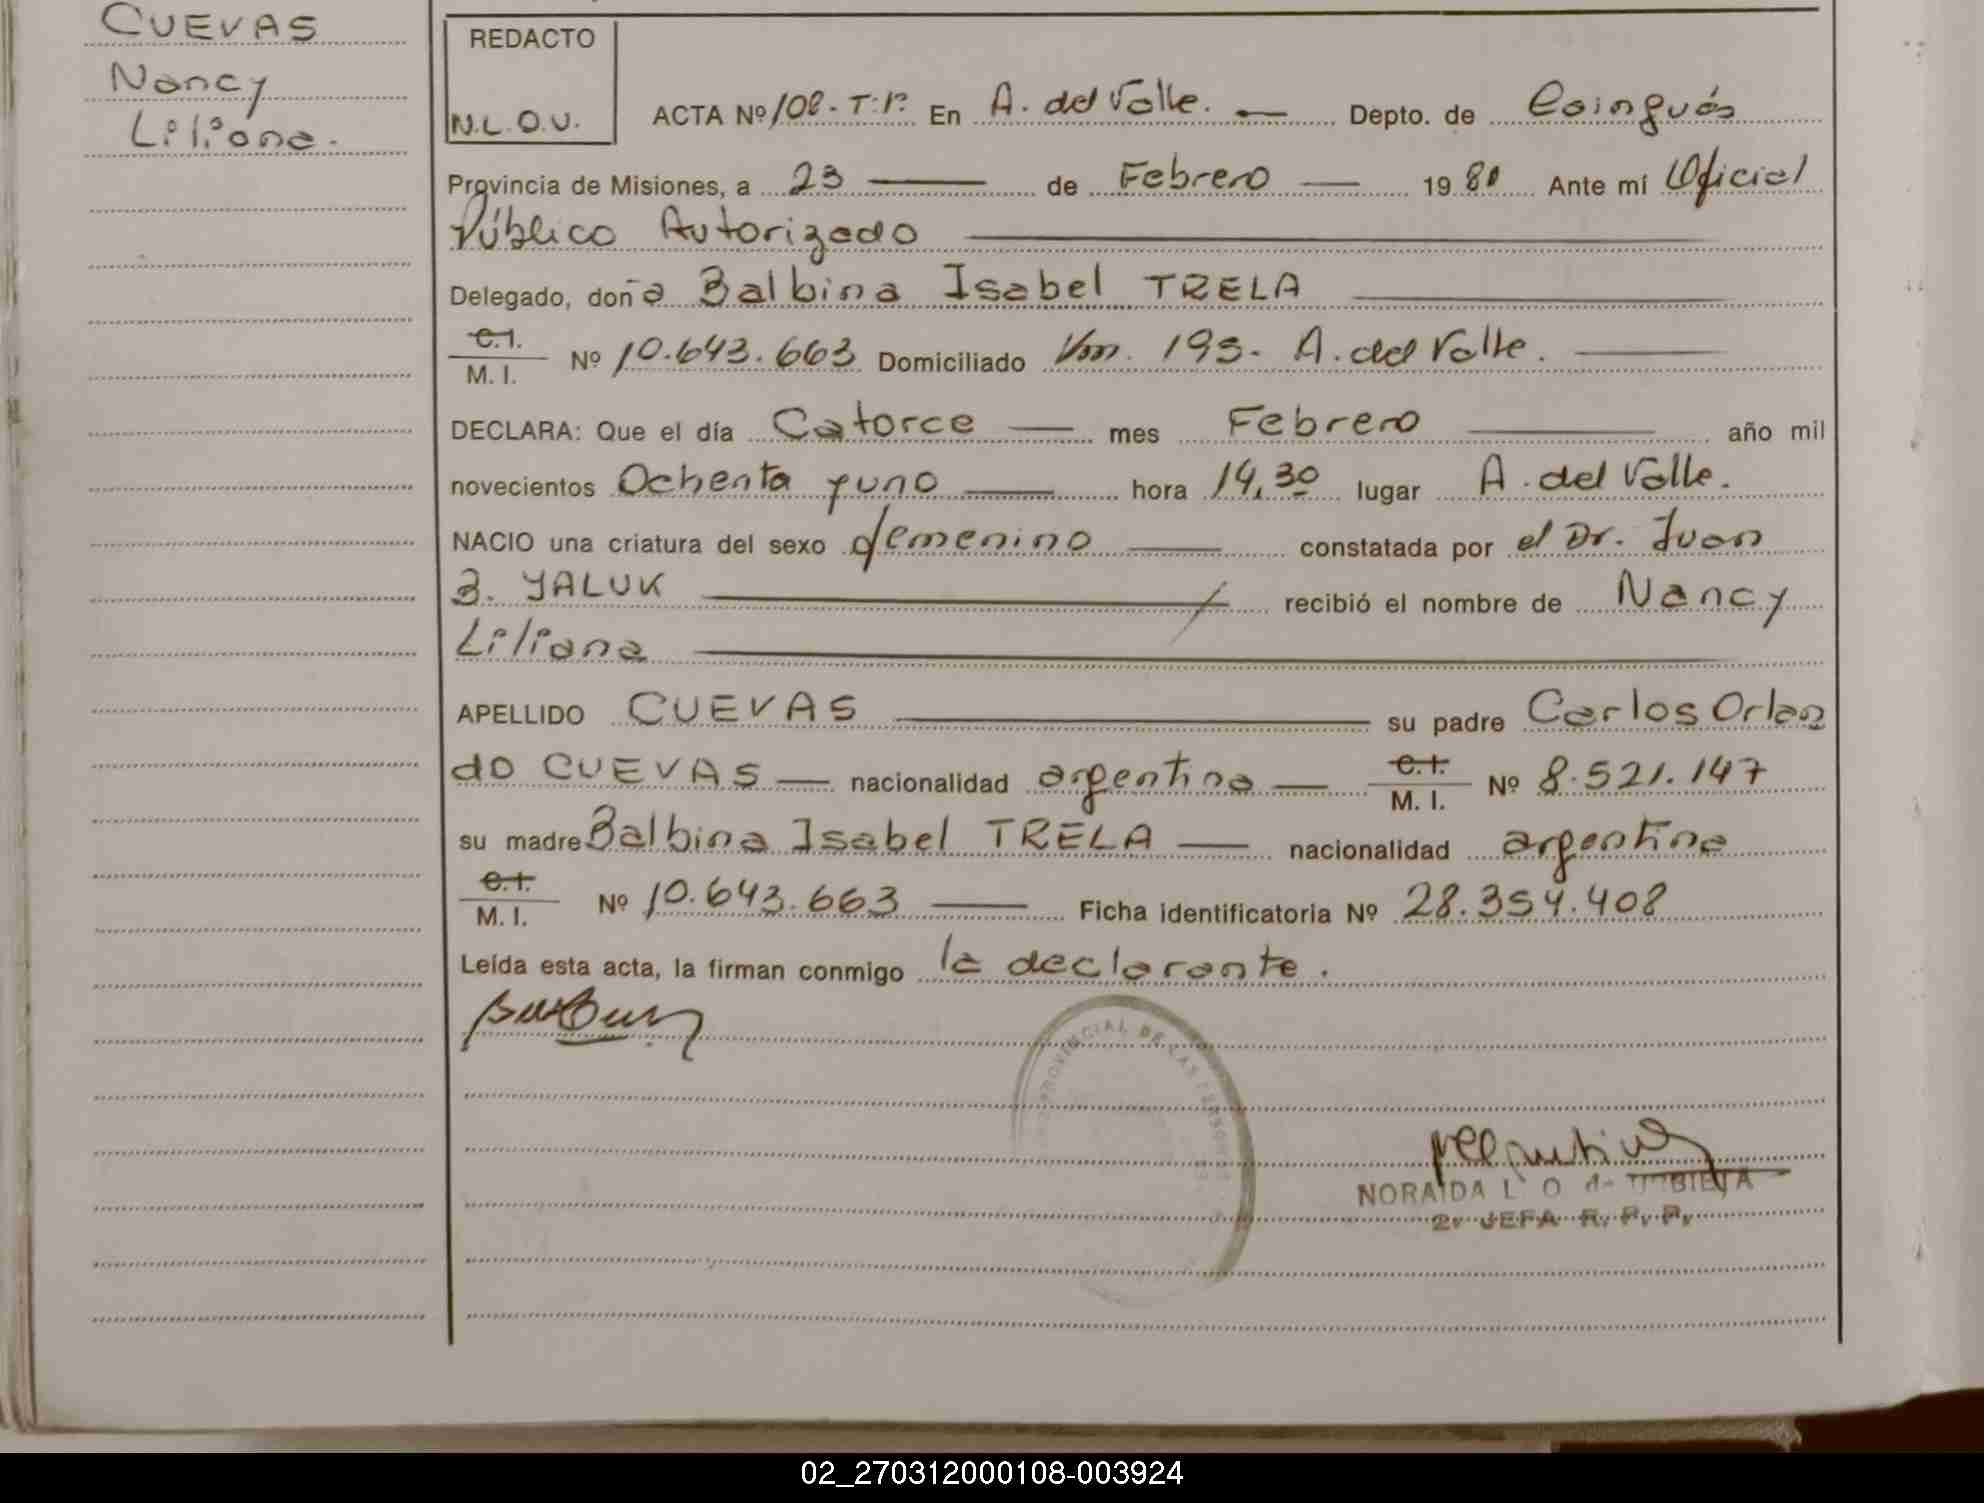 CUEVAS
Nancy
Liliana.
REDACTO
N.L.O.U.
ACTA Nº 108-T:1º. En A. del Valle. — Depto. de Cainguás
Provincia de Misiones, a 23 — de Febrero — 1981 Ante mí Oficial
Público Autorizado
Delegado, doña Balbina Isabel TRELA
C.I.
M. I. Nº 10.643.663 Domiciliado Km. 195. A. del Valle.
DECLARA: Que el día Catorce — mes Febrero — año mil
novecientos Ochenta y uno — hora 14,30 lugar A. del Valle.
NACIO una criatura del sexo femenino — constatada por el Dr. Juan
B. YALUK — recibió el nombre de Nancy
Liliana
APELLIDO CUEVAS — su padre Carlos Orlan
do CUEVAS — nacionalidad argentina — C.I. M. I. Nº 8.521.147
su madre Balbina Isabel TRELA — nacionalidad argentina
C.I.
M. I. Nº 10.643.663 — Ficha identificatoria Nº 28.354.408
Leída esta acta, la firman conmigo la declarante.
PROVINCIAL DE LAS PERSONAS
NORAIDA L. O. de URBIETA
2ª JEFA R. P. P.
02_270312000108-003924